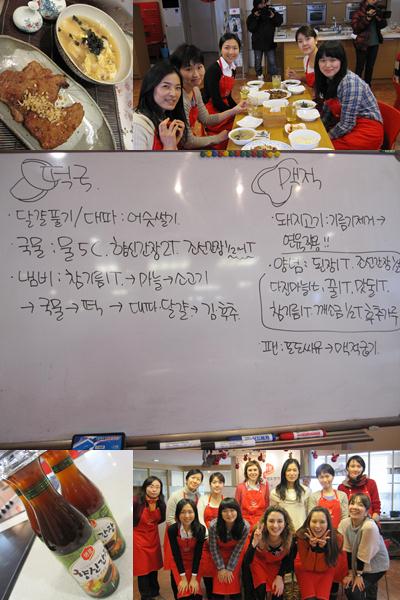 떡국
· 달걀풀기/대파 : 어슷썰기
· 국물 : 물 5C. 향신간장 2T 조선간장 1/2T
· 냄비 : 참기름 1T. → 마늘 → 소고기
→ 국물 → 떡 → 대파 달걀 → 김 후추
맥적
· 돼지고기 : 기름기제거 →
연육작용!!
· 양념 : 된장 1T. 조선간장
다진마늘 1t, 꿀 1T. 맛술 1T.
참기름 1T 깨소금 1/2T 후춧가루
· 팬 : 포도씨유 → 맥적굽기
향신간장